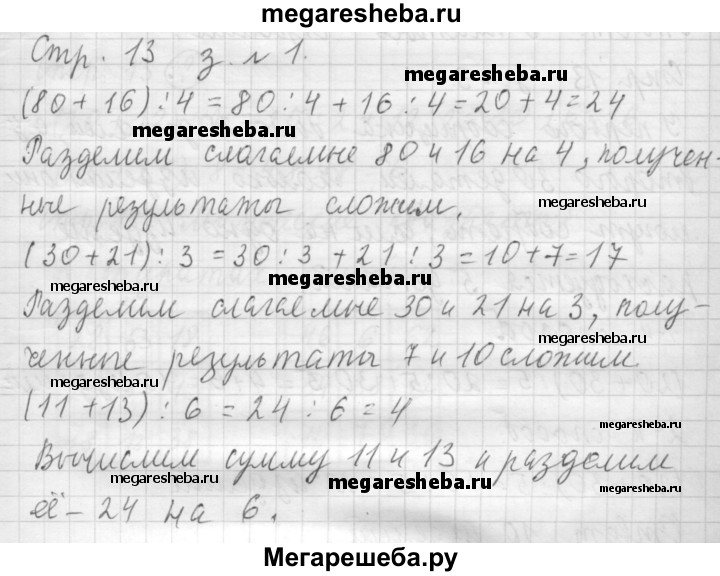 megaresheba.ru
Стр. 13 з. № 1.
megaresheba.ru
(80 + 16) : 4 = 80 : 4 + 16 : 4 = 20 + 4 = 24
megaresheba.ru
Разделим слагаемые 80 и 16 на 4, получен-
ные результаты сложим.
megaresheba.ru
(30 + 21) : 3 = 30 : 3 + 21 : 3 = 10 + 7 = 17
megaresheba.ru
Разделим слагаемые 30 и 21 на 3, полу-
megaresheba.ru
ченные результаты 7 и 10 сложим.
megaresheba.ru
(11 + 13) : 6 = 24 : 6 = 4
megaresheba.ru
Вычислим сумму 11 и 13 и разделим
megaresheba.ru
megaresheba.ru
megaresheba.ru
её - 24 на 6.
Мегарешеба.ру